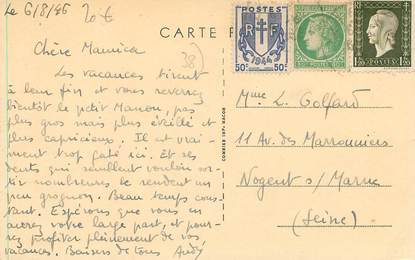 Le 6/8/46
20 €
CARTE P
38)
Chère Maurice
Les vacances tirent
à leur fin et vous reverrez
bientôt le petit Manou, pas
plus gros mais plus éveillé et
plus capricieux. Il est vrai-
ment trop gâté ici. Et ses
dents qui semblent vouloir sor-
tir nombreuses le rendent un
peu grognon. Beau temps cons-
tant. Espérons que vous en
aurez votre large part, et pour-
rez profiter pleinement de vos
vacances. Baisers de tous
POSTES
RF
1944
50c 50c
POSTES
1f50
Mme L. Golfard
11 Av. des Marronniers
Nogent s/ Marne
(Seine)